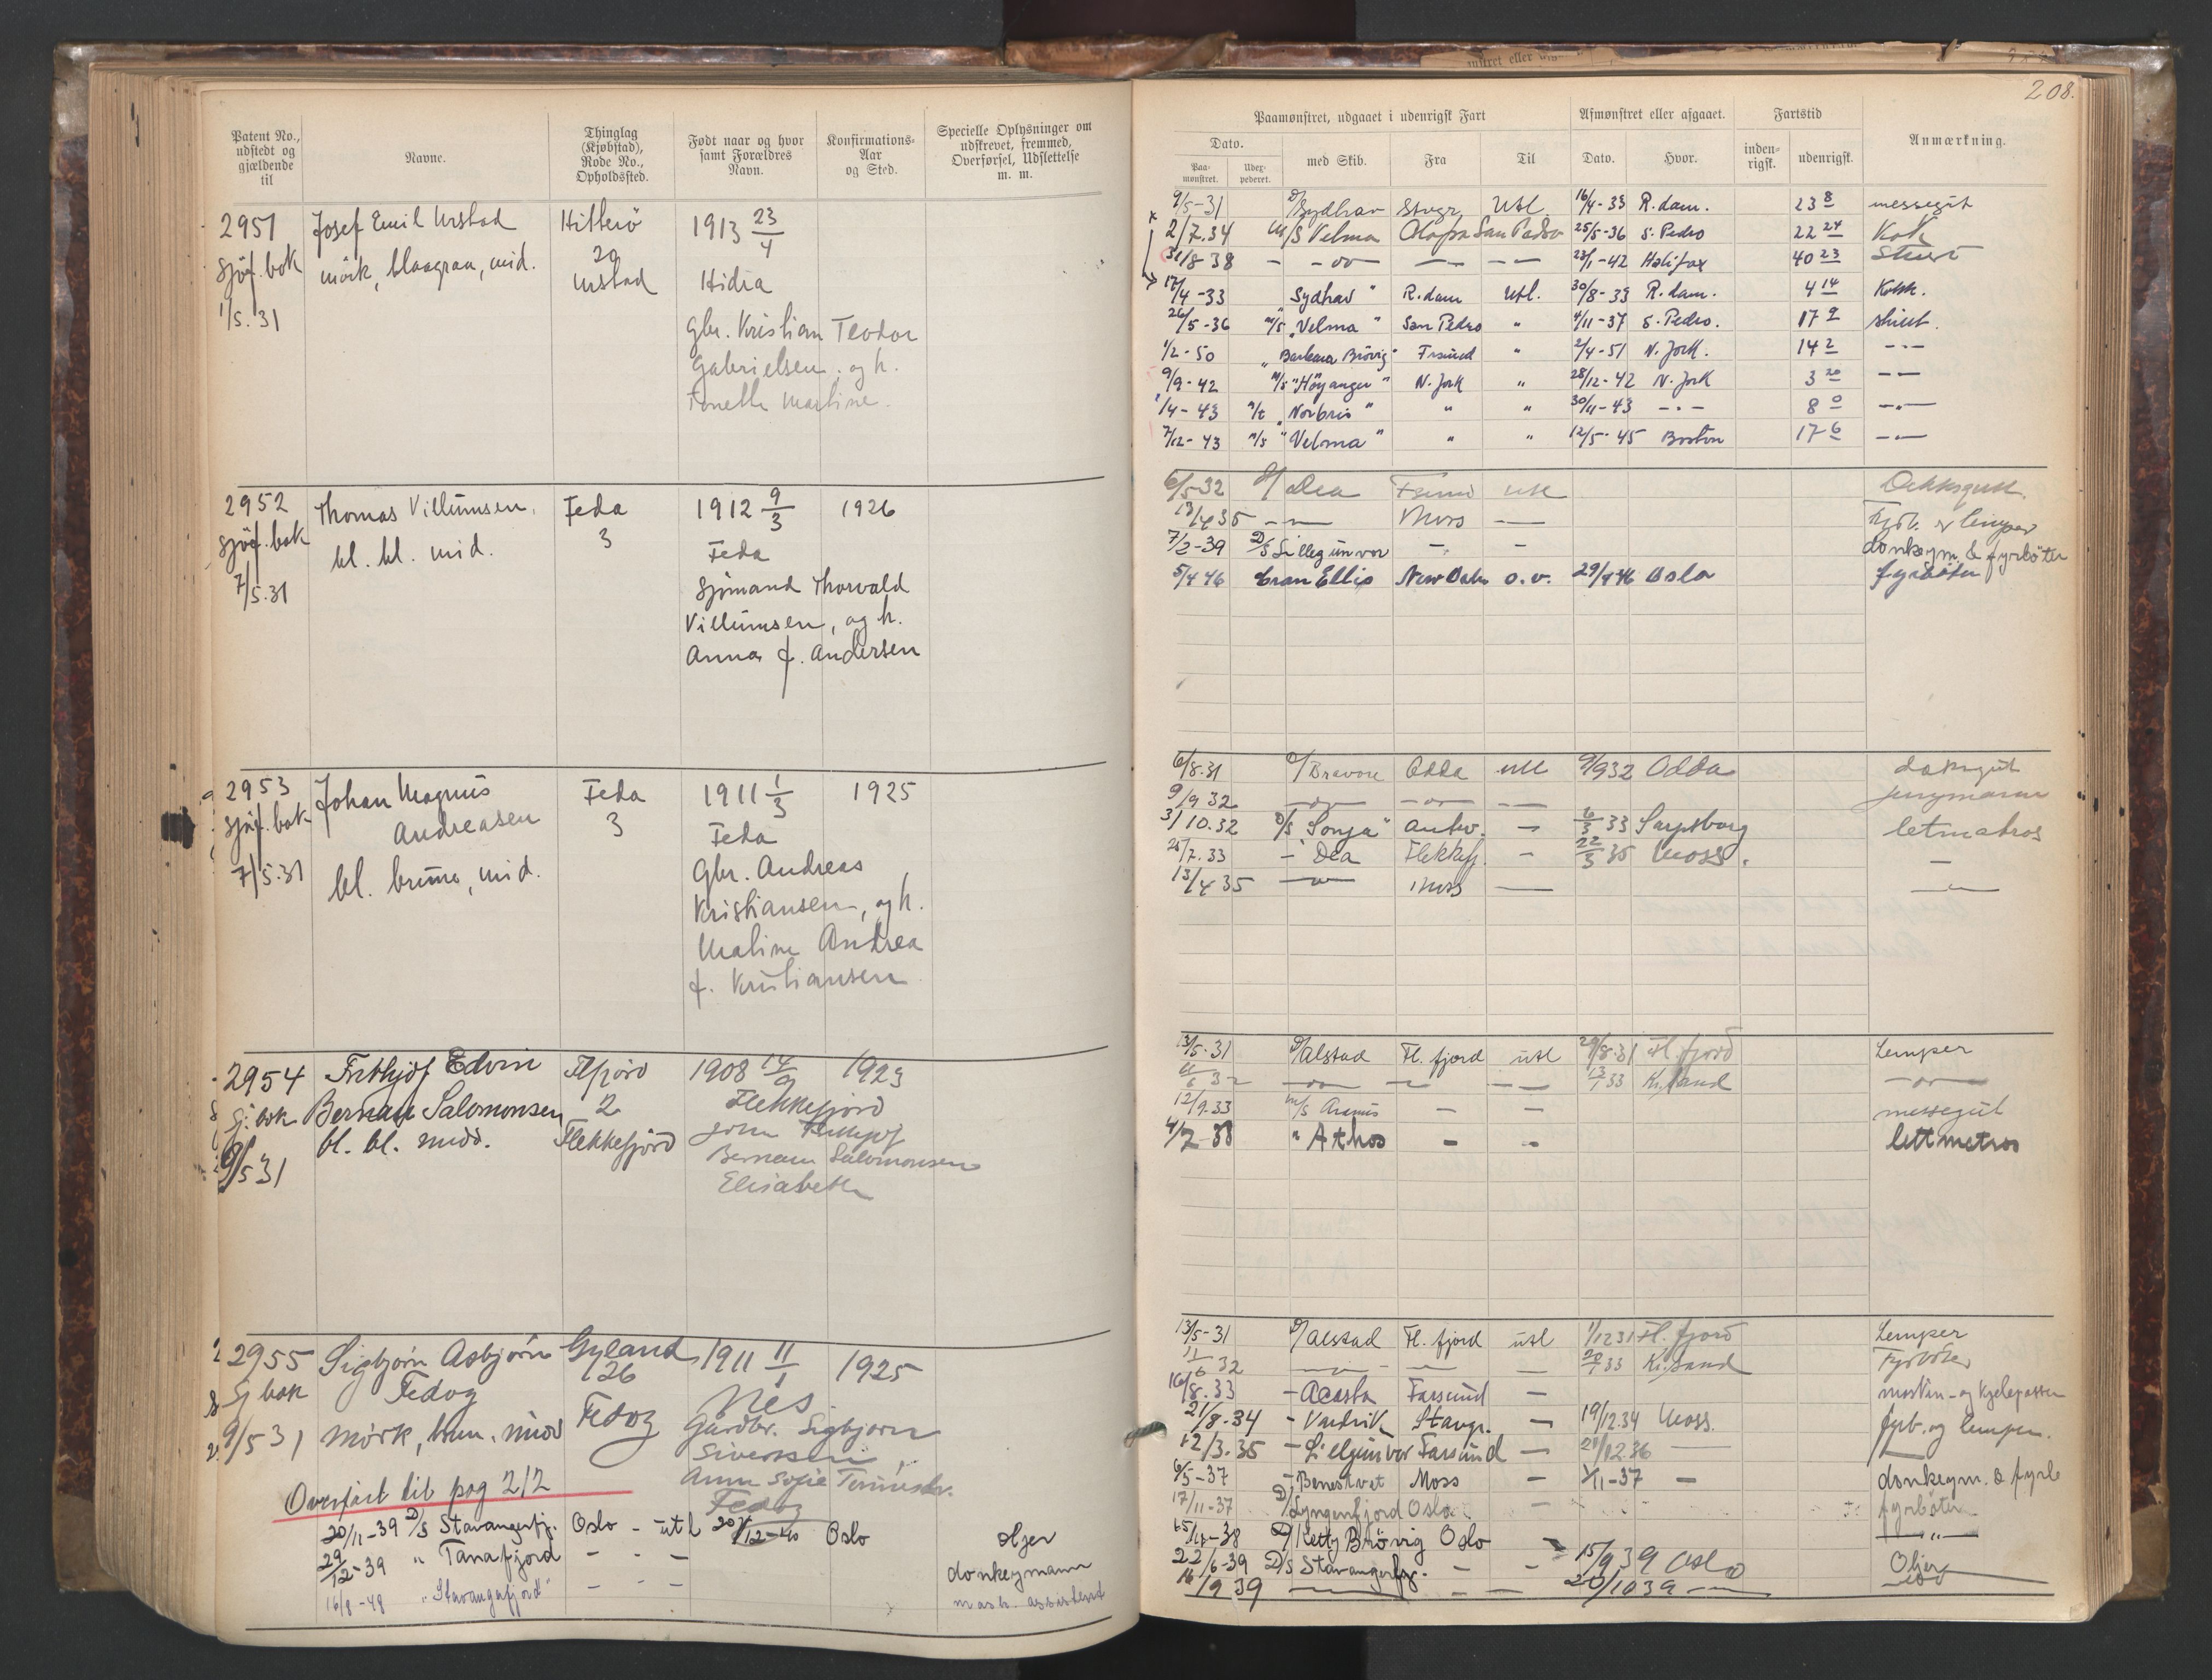 208.
Patent No., udstedt og gjældende til
Navne.
Thinglag (Kjøbstad), Rode No., Opholdssted.
Født naar og hvor samt Forældres Navn.
Konfirmations-Aar og Sted.
Specielle Oplysninger om udskrevet, fremmed, Overførsel, Udslettelse m. m.
2951 Josef Emil Urstad Hitterö 1913 23/4
sjöf. bok mörk, blaagraa, mid. 20 Urstad Hidra
1/5.31 Gbr. Kristian Teodor
Gabrielsen, og h.
Tonette Martine.
2952 Thomas Villumsen, Feda 1912 9/3 1926
sjöf. bok bl. bl. mid. 3 Feda
7/5.31 Sjömand Thorvald
Villumsen, og h.
Anna f. Andersen
2953 Johan Magnus Feda 1911 1/3 1925
sjöf. bok Andreasen 3 Feda
7/5.31 bl. brune, mid. Gbr. Andreas
Kristiansen, og h.
Maline Andrea
f. Kristiansen
2954 Frithjof Edvin Flfjord 1908 14/9 1923
Sj. bok Bernau Salomonsen 2 Flekkefjord
bl. bl. midd. Flekkefjord John Frithjof
9/5 31 Bernau Salomonsen
Elisabeth
2955 Sigbjörn Asbjörn Gyland 1911 11/1 1925
Sj bok Fedog 126 Nes
9/5 31 Mörk, brun. midd Fedog Gardbr. Sigbjørn
Sivertsen
Anna Sofie
Fedog
Overført til pag 212
20/11-39 D/S Stavangerfj. Oslo - utl 20/12-40 Oslo Oljer
29/12-39 " Tanafjord - - - donkeymann
16/8-48 "Stavangerfjord" - - - mask. assistent
Paamønstret, udgaaet i udenrigsk Fart
Afmønstret eller afgaaet.
Fartstid
Anmærkning.
Dato.
Paa-mønstret.
Udex-pederet.
med Skib.
Fra
Til
Dato.
Hvor.
inden-rigsk.
udenrigsk.
9/5-31 D/ Sydhav Stvgr. Utl. 16/4-33 R.dam. 23 8 messegut
2/7.34 M/S Velma San Pedro 25/5-36 S. Pedro 22 24 Kok
31/8-38 - - oo - - - - - 23/1-42 Halifax 40 23 Stuert
17/4-33 "Sydhav" R.dam Utl. 30/8-33 R.dam. 4 14 Kokk.
26/5-36 m/s "Velma" San Pedro " 4/11-37 S. Pedro. 17 9 stuert.
1/2-50 " Barbara Brövig" Frsund " 2/4-51 N. York. 14 2 - " -
9/9-42 m/s "Höyanger" N. York " 28/12-42 N. York 3 20 - " -
1/4-43 m/t "Norbris" " " 30/11-43 - " - 8 0 - " -
7/12-43 m/s "Velma" " " 12/5-45 Boston 17 6 - " -
6/5-32 D/ Dea Frsund utl Dekksgutt.
13/4 35 - " - Moss - Fyrb. & lemper
7/2-39 D/S Lillegunvor - - donkeym. & fyrböter
5/4 46 Cran Ellis o.v. 29/4-46 Oslo fyrböter
6/8.31 D/ Bravore Odda utl 9/9 32 Odda dekksgut
9/9 32 - " - - " - - jungmann
3/10.32 D/S "Sonja" Antw. - 6/3 33 Sarpsborg letmatros
25/7.33 - Dea Flekkefj. - 22/3 35 Moss. -
13/4 35 - " - Moss - - " -
13/5-31 D/ Alstad Fl.fjord utl 29/8.31 Fl.fjord Lemper
11/6 32 - oo - - - 13/1 33 Kr.sand - oo -
12/9.33 m/s Aramis - - messegut
4/7-38 " Athos - - lettmatros
13/5-31 D/ Alstad Fl.fjord utl 1/12 31 Fl.fjord Lemper
11/6 32 - " - - - 20/1 33 Kr.sand Fyrböter
16/8.33 - Acasta Farsund - maskin- og kjelepasser
21/8-34 - Vardvik Stavgr. - 19/12 34 Moss. fyrb. og lemper.
12/3.35 - Lillegunvor Farsund - 21/12.36 -
6/5-37 - Benestvet Moss - 3/11-37 - donkeym. & fyrb
17/11-37 D/ Lyngenfjord Oslo - fyrböter
15/12-38 D/ Ketty Brövig Oslo - " -
22/6-39 D/S Stavangerfj. - - 15/9 39 Oslo Oljer
16/9 39 - - - 20/10 39 - -